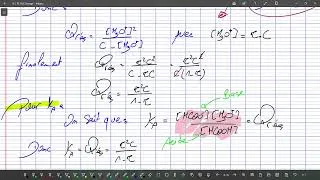 Donc
Q_{r,éq} = [H₃O⁺]² / (C - [H₃O⁺]) avec [H₃O⁺] = τ.C
finalement Q_{r,éq} = τ²C² / (C - τC) = τ²C² / C(1-τ)
Q_{r,éq} = τ²C / (1-τ)
Pour K_A
Base
On sait que K_A = [HCOO⁻][H₃O⁺] / [HCOOH] = Q_{r,éq}
Acide
Donc K_A = Q_{r,éq} = τ²C / (1-τ)